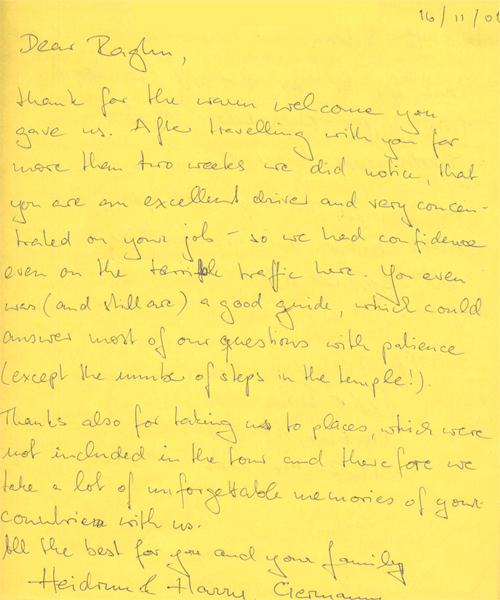 16/11/0
Dear Raghu,
thank for the warm welcome you
gave us. After travelling with you for
more than two weeks we did notice, that
you are an excellent driver and very concen-
trated on your job - so we had confidence
even on the terrible traffic here. You even
was (and still are) a good guide, which could
answer most of our questions with patience
(except the number of steps in the temple!).
Thanks also for taking us to places, which were
not included in the tour and therefore we
take a lot of unforgettable memories of your
with us.
All the best for you and your family
Heidrun & Harry, Germany